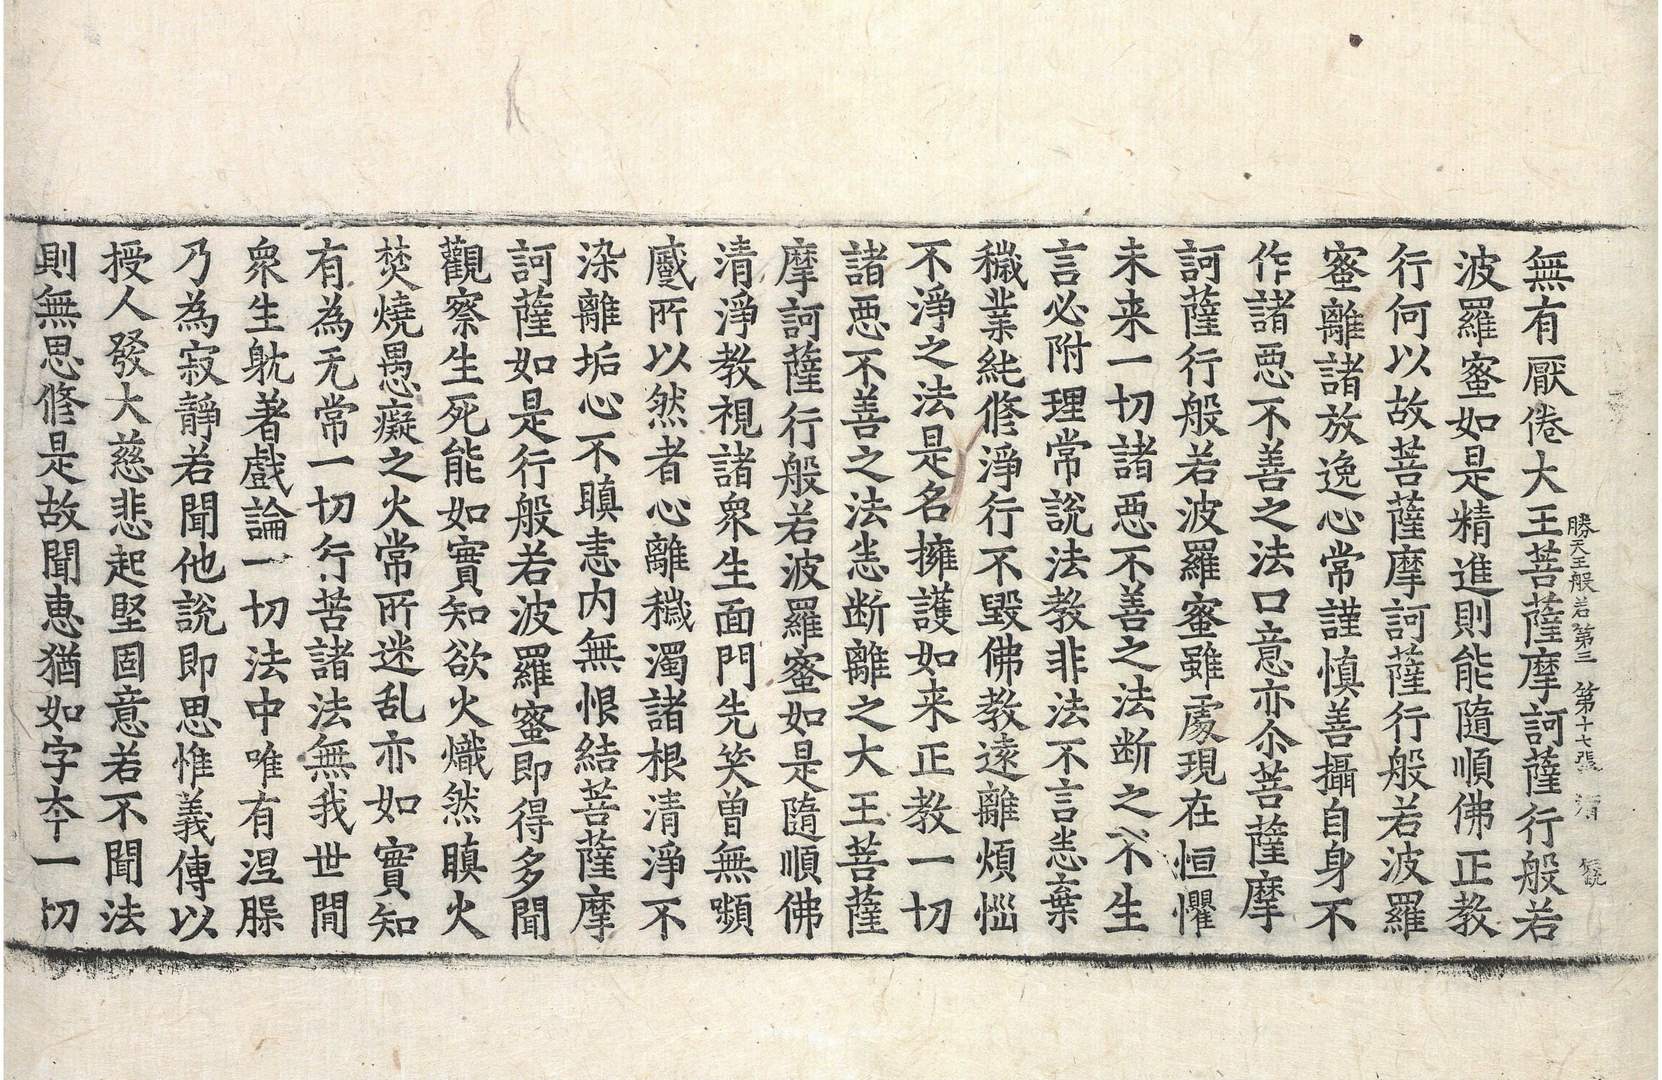 勝天王般若第三　第十七張
無有厭倦大王菩薩摩訶薩行般若
波羅蜜如是精進則能隨順佛正教
行何以故菩薩摩訶薩行般若波羅
蜜離諸放逸心常謹慎善攝自身不
作諸惡不善之法口意亦尒菩薩摩
訶薩行般若波羅蜜雖處現在恒懼
未来一切諸惡不善之法断之不生
言必附理常說法教非法不言恙棄
穢業純脩淨行不毀佛教遠離煩惱
不淨之法是名擁護如来正教一切
諸惡不善之法恙断離之大王菩薩
摩訶薩行般若波羅蜜如是隨順佛
清淨教視諸衆生面門先笑曽無嚬
慼所以然者心離穢濁諸根清淨不
染離垢心不瞋恚内無恨結菩薩摩
訶薩如是行般若波羅蜜即得多聞
觀察生死能如實知欲火熾然瞋火
焚燒愚癡之火常所迷乱亦如實知
有為无常一切行苦諸法無我世間
衆生躭著戲論一切法中唯有涅槃
乃為寂靜若聞他說即思惟義傳以
授人發大慈悲起堅固意若不聞法
則無思脩是故聞惠猶如字夲一切